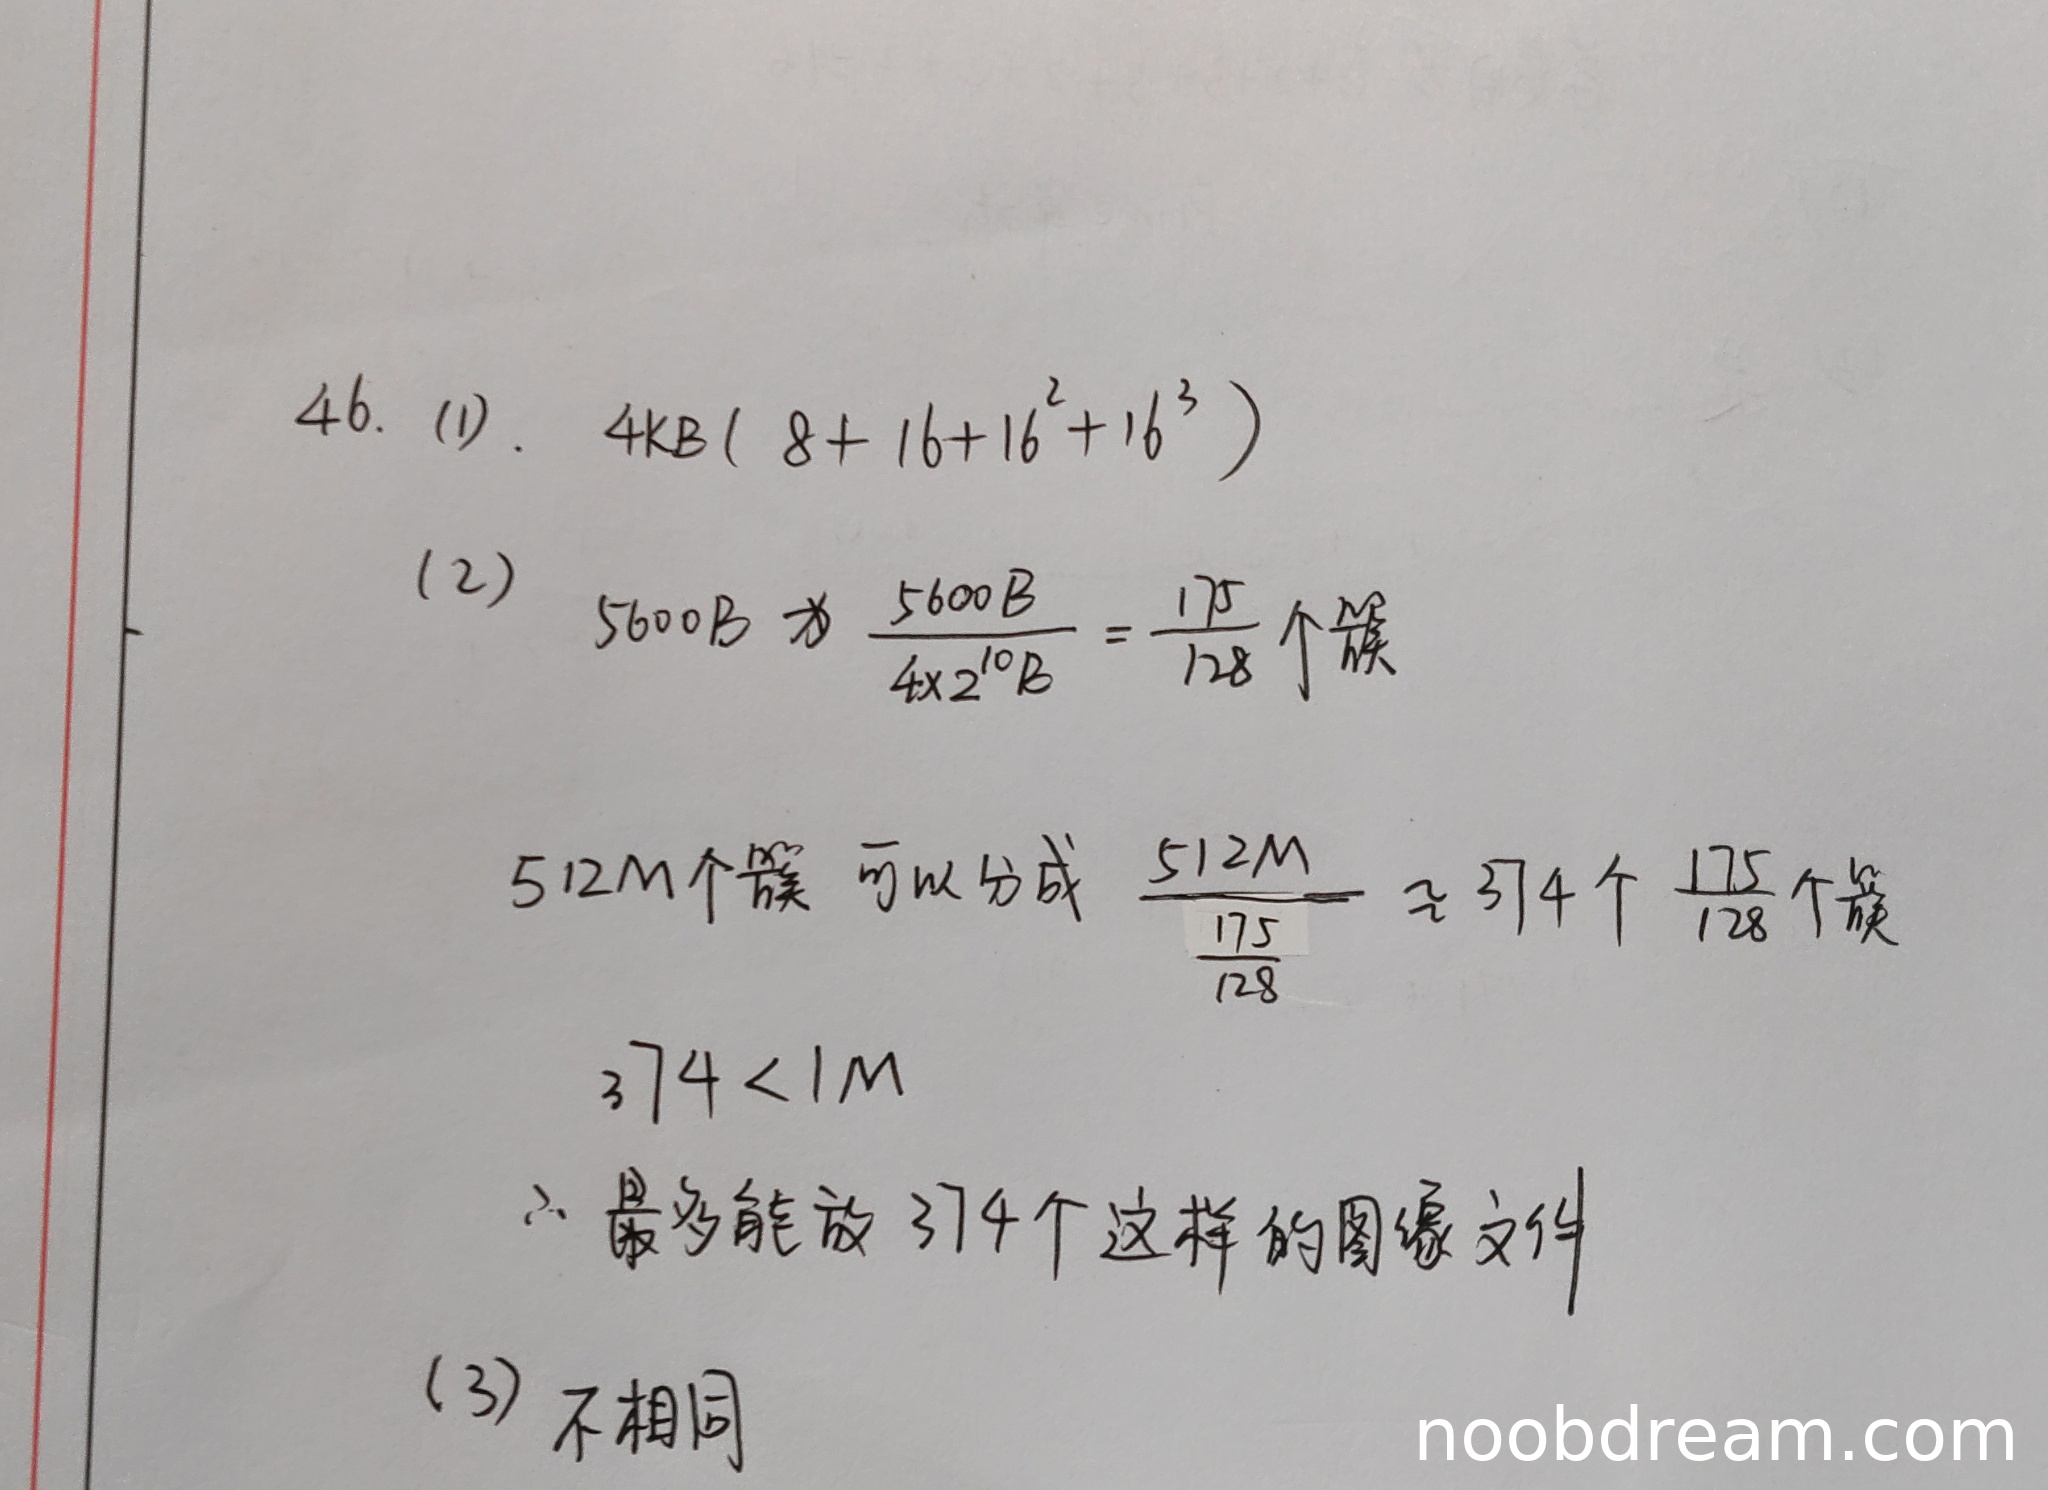 46. (1). 4KB( 8+ 16+16²+16³ )
(2) 5600B 为 5600B / 4×2¹⁰B = 175/128 个簇
512M个簇 可以分成 512M / (175/128) ≈ 374个 175/128 个簇
374 < 1M
∴ 最多能放 374个这样的图像文件
(3) 不相同
noobdream.com